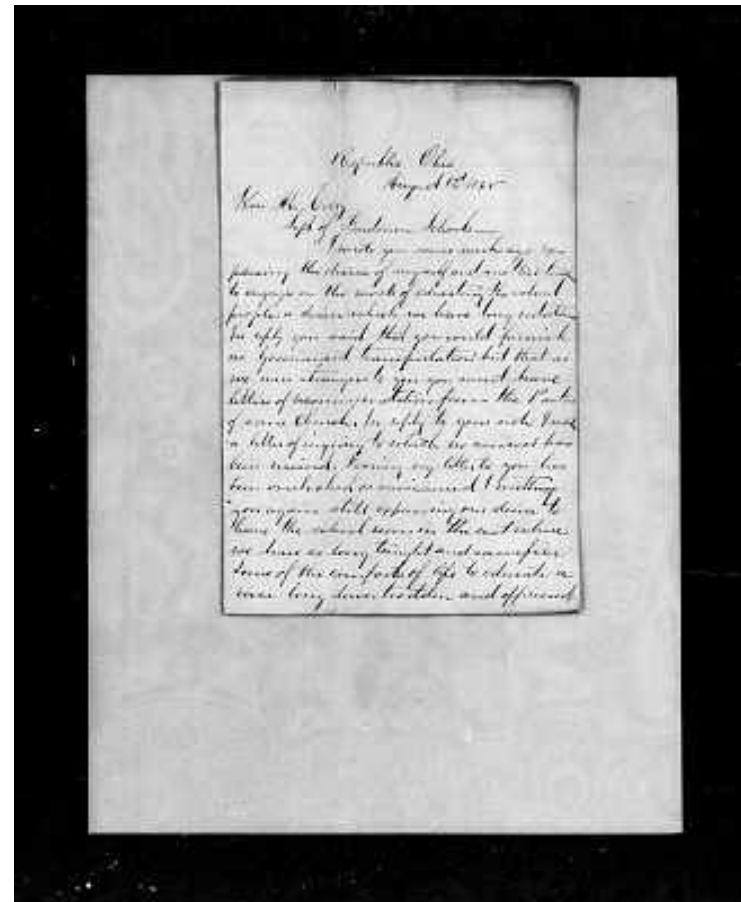 Republic Ohio
August 12th 1865
Supt of Freedmen Schools
I wrote you some weeks ago ex-
pressing the desire of myself and
to engage in the work of educating the colored
people a desire which we have long
In reply you said that you would furnish
us Government transportation but that as
we were strangers to you you must have
letters of recommendation from the Pastor
of some Church. In reply to your note I sent
a letter of inquiry to which no answer has
been received. Fearing my letter to you has
been overlooked or miscarried I
you again still expressing our desire to
leave the school room in the
we have so long taught and sacrifice
some of the comforts of life to educate a
race long down trodden and oppressed